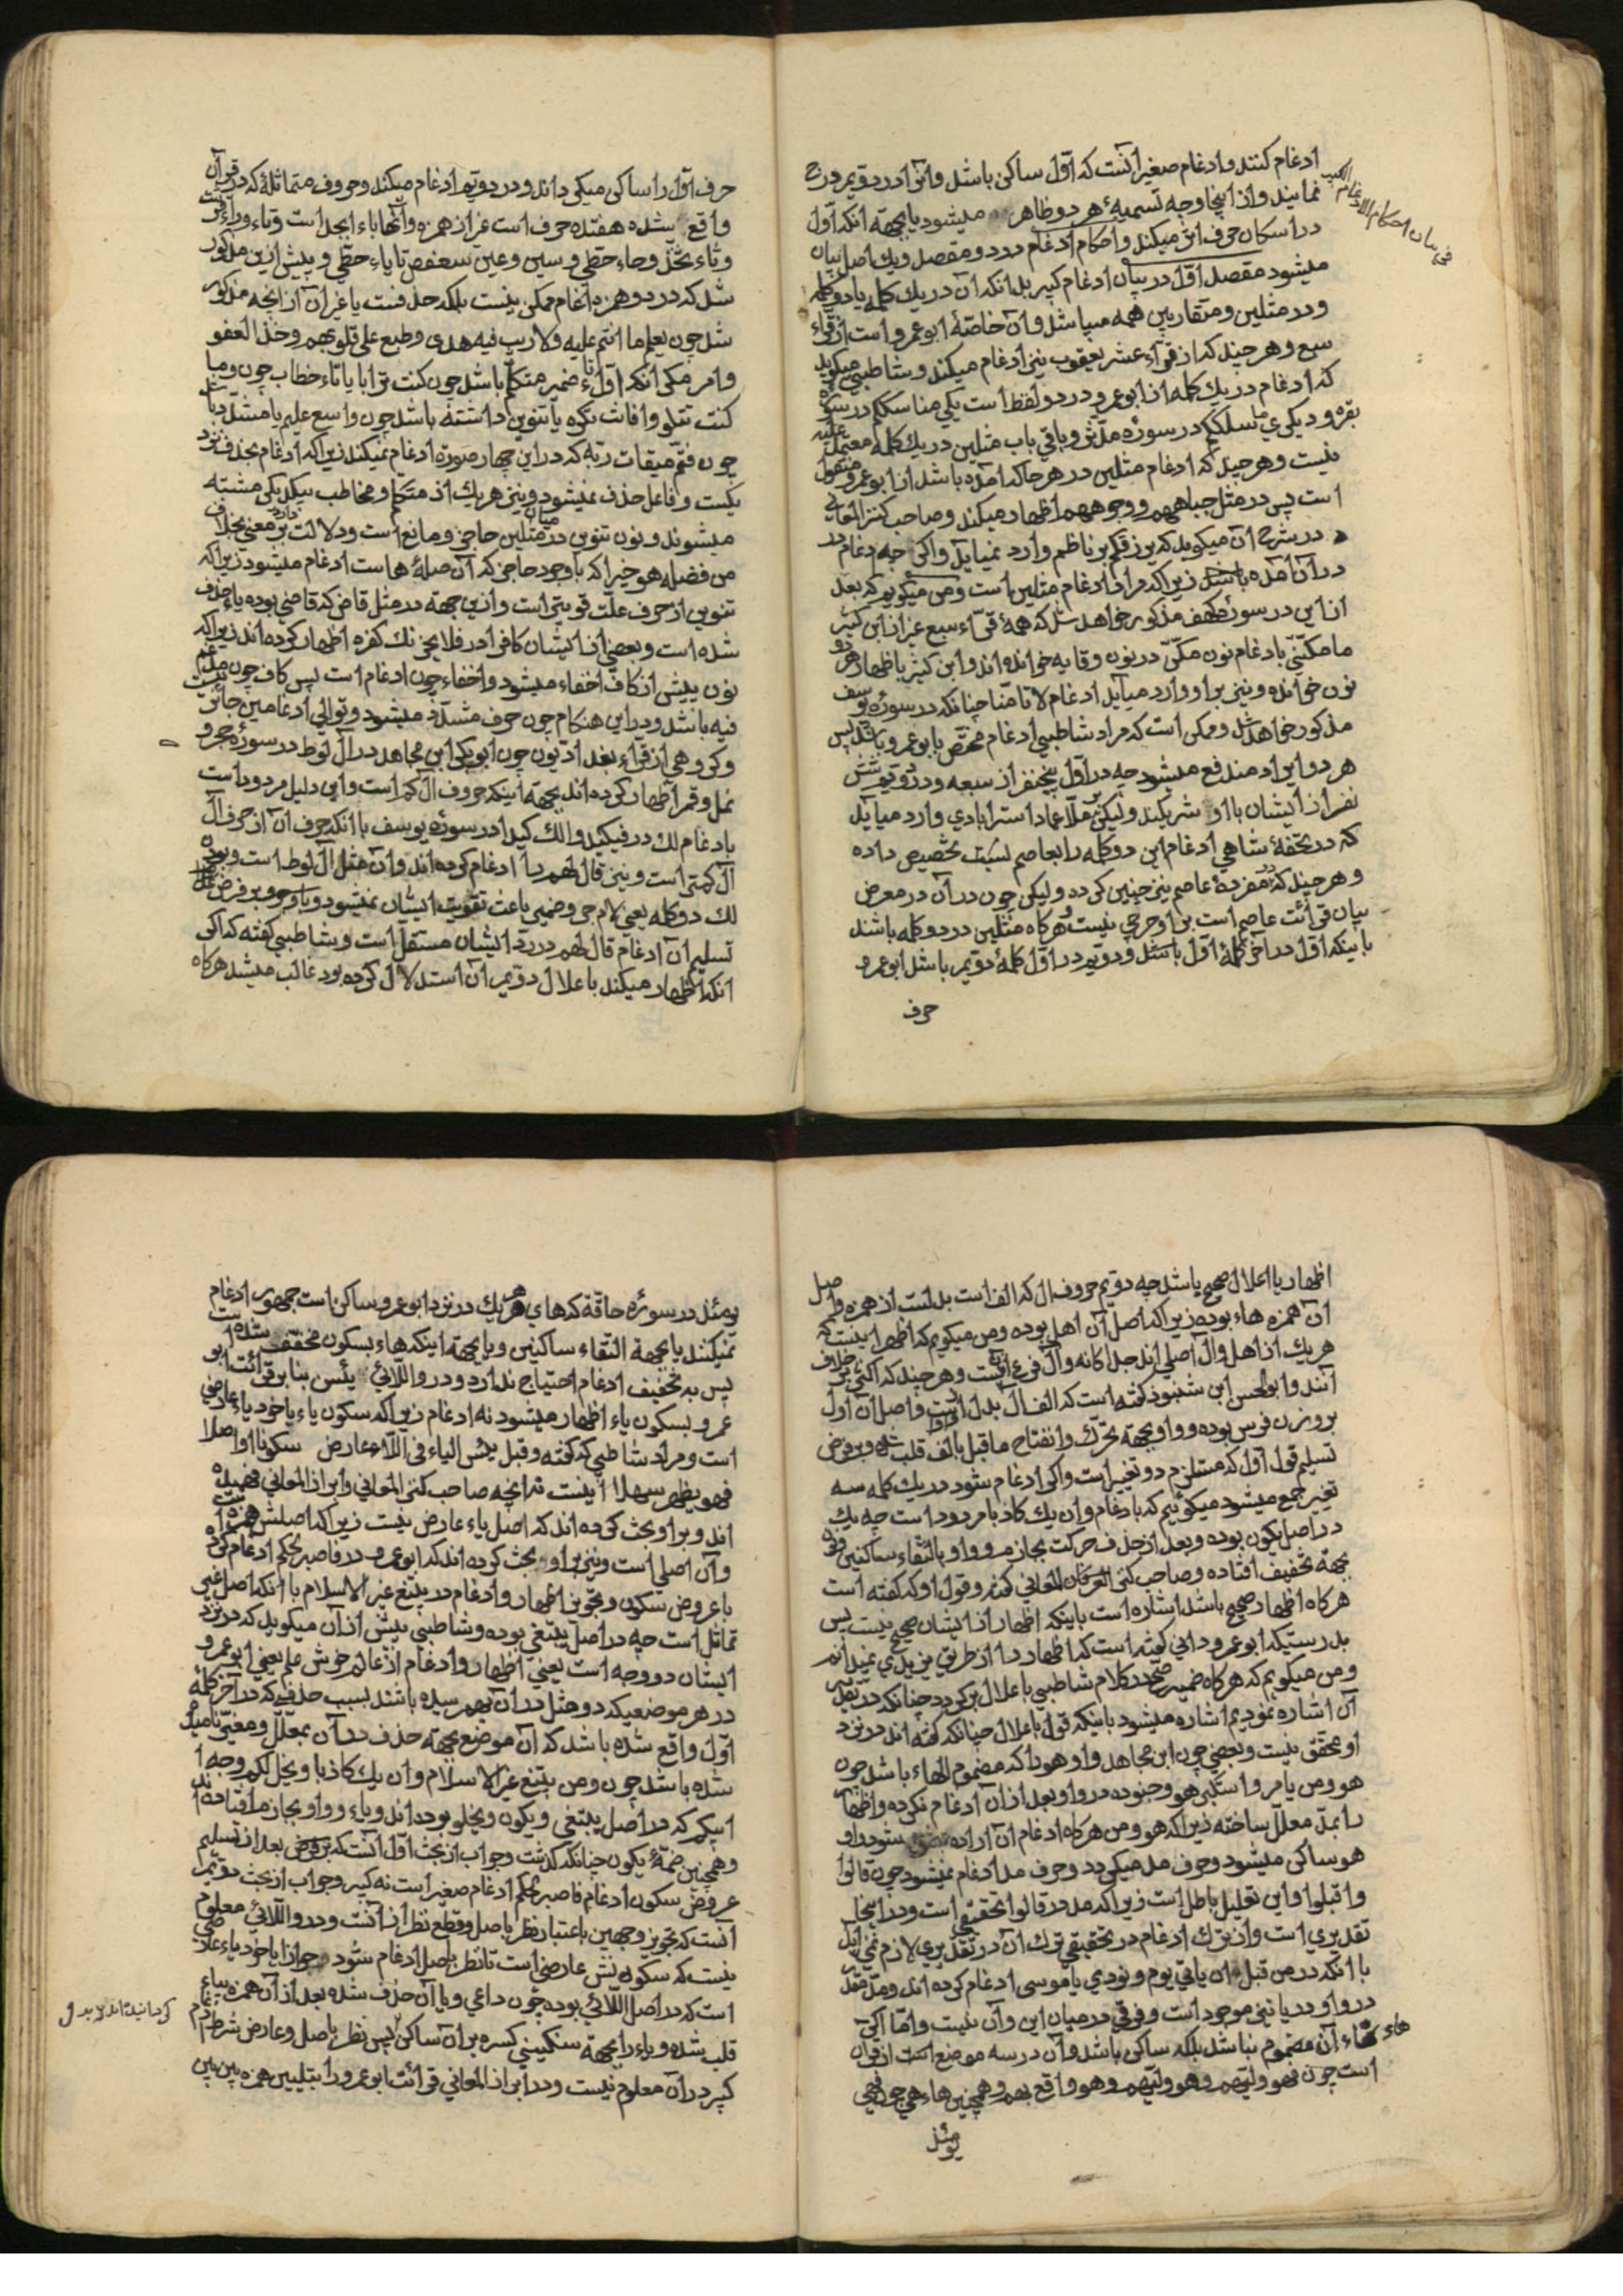 ادغام کنند و ادغام صغیر آنست که اول ساکن باشد و آنرا در دویم درج
نمایند و از اینجا وجه تسمیهٔ هر دو ظاهر میشود یا بجهة آنکه اول
در اسکان حرف اثر میکند و احکام ادغام در دو مقصد و یک اصل بیان
میشود مقصد اول در بیان ادغام کبیر بدانکه آن در یک کلمه یا دو کلمه
و در مثلین و متقاربین همه میباشد و آن خاصّهٔ ابو عمرو است از قرّاء
سبع و هر چند که از قرّاء عشر یعقوب نیز ادغام میکند و شاطبی میگوید
که ادغام در یک کلمه از ابو عمرو در دو لفظ است یکی مناسککم در سورهٔ
بقره و دیکری ما سلککم در سورهٔ مدّثر و باقی باب مثلین در یک کلمه معتمد علیه
نیست و هر چند که ادغام مثلین در هر جا که آمده باشد از ابو عمرو منقول
است پس در مثل جباههم و وجوههم اظهار میکند و صاحب کنز المعانی
در شرح آن میکوید که یرزقکم بر ناظم وارد نمیاید و اکر چه ادغام در
در آن آمده باشد زیرا که مراد ادغام مثلین است و من میکویم که بعد
از این در سورهٔ کهف مذکور خواهد شد که همهٔ قرّاء سبع غیر از ابن کثیر
ما مکّنّی بادغام نون مکّن در نون وقایه خوانده اند و ابن کثیر باظهار هر دو
نون خوانده و نیز بر او وارد میآید ادغام لا تامنّا چنانکه در سورهٔ یوسف
مذکور خواهد شد و ممکن است که مراد شاطبی ادغام مختصّ بابو عمرو باشد پس
هر دو ایراد مندفع میشود چه در اول پنج نفر از سبعه و در دویم شش
نفر از ایشان با او شریکند و لیکن بر ملّا عماد استرابادی وارد میآید
که در تحفهٔ شاهی ادغام این دو کلمه را بعاصم نسبت تخصیص داده
و هر چند که در مفردهٔ عاصم نیز چنین کرده و لیکن چون در آن در معرض
بیان قرائت عاصم است بر او حرجی نیست و هرکاه مثلین در دو کلمه باشند
باینکه اول در آخر کلمهٔ اول باشد و دویم در اول کلمهٔ دویم باشد ابو عمرو
حرف
در بیان احکام الادغام الکبیر
حرف اول را ساکن میکرداند و در دویم ادغام میکند و حروف متماثله که در قرآن
واقع شده هفتده حرف است غیر از همزه و آنها باء ابجد است و تاء و راء قرشت
و ثاء ثخّذ و حاء حطّی و سین و عین سعفص تا یاء حطّی و پیش ازین مذکور
شد که در دو همزه ادغام ممکن نیست بلکه حذفست یا غیر آن از آنچه مذکور
شد چون یعلم ما انتم علیه و لا ریب فیه هدی و طبع علی قلوبهم و خذ العفو
وامر مکر آنکه اول تاء ضمیر متکلم باشد چون کنت ترابا یا تاء خطاب چون و ما
کنت تتلوا افانت تکره یا تنوین داشته باشد چون واسع علیم یا مشدّد باشد
چون فتمّ میقات ربّه که در این چهار صورة ادغام نمیکند زیرا که ادغام بحذف نزد
یکست و فاعل حذف نمیشود و نیز هر یک از متکلم و مخاطب بیکدیکر مشتبه
میشوند و نون تنوین در میان مثلین حاجز و مانع است و دلالت بر معنی دارد بخلاف
من فضله هو خیرا که باوجود حاجز که آن صلهٔ هاست ادغام میشود زیرا که
تنوین از حرف علّت قویتر است و ازین جهة در مثل قاض که قاضی بوده یاء حذف
شده است و بعضی از ایشان کاف را در فلا یحزنک کفره اظهار کرده اند زیرا که
نون پیش از کاف اخفاء میشود و اخفاء چون ادغام است پس کاف چون مدغم
فیه باشد و در این هنکام چون حرف مشدّد میشود و توالی ادغامین جائز نیست
و کروهی از قرّاء بغدادیّون چون ابو بکر ابن مجاهد در آل لوط در سورهٔ حجر و
نمل و قمر اظهار کرده اند بجهة اینکه حروف آل کم است و این دلیل مردود است
بادغام لک در فیکیدوا لک کیدا در سورهٔ یوسف با آنکه حرف آن از حرف آل
آل کمتر است و نیز قال لهم را ادغام کرده اند و آن مثل آل لوط است و بودن
لک دو کلمه یعنی لام جر و ضمیر باعث تقویت ایشان نمیشود و باوجود بر فرض
تسلیم آن ادغام قال لهم در ردّ ایشان مستقلّ است و شاطبی کفته که اکر
آنکه اظهار میکند باعلال دویم آن استدلال کرده بود غالب میشد هرکاه
اظهار یا اعلال صحیح باشد چه دویم حروف آل که الف است بدلست از همزه و اصل
آن همزه هاء بوده زیرا که اصل آن اهل بوده و من میکویم که اظهر اینست که
هر یک از اهل و آل اصلی اند جداکانه و آل فرع آن نیست و هر چند که اکثر بر خلاف
آنند و ابو الحسن ابن شنبوذ کفته است که الف آل بدل از واو است و اصل آن اول
بر وزن فرس بوده و واو بجهة تحرّک و انفتاح ما قبل بالف قلب شده و بر فرض
تسلیم قول اول که مستلزم دو تغییر است و اکر ادغام شود در یک کلمه سه
تغییر جمع میشود میکوئیم که بادغام و ان یک کاذبا مردود است چه یک
در اصل یکون بوده و بعد از حذف حرکت بجازم و واو بالتقاء ساکنین نون
بجهة تخفیف افتاده و صاحب کنز المعانی کفته و قول او که کفته است
هرکاه اظهار صحیح باشد اشاره است باینکه اظهار از ایشان صحیح نیست پس
بدرستیکه ابو عمرو دانی کفته است که اظهار را از طریق یزیدی نمیدانم
و من میکویم که هرکاه ضمیر صحّ در کلام شاطبی باعلال برکردد چنانکه در تقدیر
آن اشاره نمودیم اشاره میشود باینکه قول باعلال چنانکه کفته اند در نزد
او محقق نیست و بعضی چون ابن مجاهد واو هو را که مضموم الهاء باشد چون
هو و من یامر و استکبر هو و جنوده در واو بعد از آن ادغام نکرده و اظهار
را بمدّ معلّل ساخته زیرا که هو و من هرکاه ادغام آن اراده شود واو
هو ساکن میشود و حرف مد میکردد و حرف مد ادغام نمیشود چون قالوا
و اقبلوا و این تعلیل باطل است زیرا که مد در قالوا تحقیقی است و در اینجا
تقدیری است و از ترک ادغام در تحقیقی ترک آن در تقدیری لازم نمی آید
با آنکه در من قبل ان یاتی یوم و نودی یا موسی ادغام کرده اند و مدّ مقدّر
در واو در یا نیز موجود است و فرقی در میان این و آن نیست و امّا اکر
هاء آن مضموم نباشد بلکه ساکن باشد و آن در سه موضع است از قرآن
است چون فهو ولیّهم و هو ولیّهم و هو واقع بهم و همچنین هاء هی چون فهی
یومئذ
یومئذ در سورهٔ حاقّه که های هر یک در نزد ابو عمرو ساکن است جمهور ادغام
نمیکنند یا بجهة التقاء ساکنین و یا بجهة اینکه هاء بسکون مخفّف شده است
پس به تخفیف ادغام احتیاج ندارد و در و اللّائی یئسن بنا بر قرائت ابو
عمرو بسکون یاء اظهار میشود نه ادغام زیرا که سکون یاء یا خود یاء عارضی
است و مراد شاطبی که کفته و قبل یئسن الیاء فی اللّاء عارض سکونا او اصلا
فهو یظهر مسهلا اینست نه آنچه صاحب کنز المعانی و ابراز المعانی فهمیده
اند و بر او بحث کرده اند که اصل یاء عارض نیست زیرا که اصلش همزه است
و آن اصلی است و نیز بر او بحث کرده اند که ابو عمرو در فاصبر لحکم ادغام کرده
با عروض سکون و تجویز اظهار و ادغام در یبتغ غیر الاسلام با آنکه اصل غیر
تماثل است چه در اصل یبتغی بوده و شاطبی پیش از آن میکوید که در نزد
ایشان دو وجه است یعنی اظهار و ادغام از عالم خوش علم یعنی ابو عمرو
در هر موضعیکه دو مثل در آن بهم رسیده باشند بسبب حذفی که در آخر کلمهٔ
اول واقع شده باشد که آن موضع بجهة حذف در آن بمعلّل و مغیّر نامیده
شده باشد چون و من یبتغ غیر الاسلام و ان یک کاذبا و یخل لکم وجه ا
بیکم که در اصل یبتغی و یکون و یخلو بوده اند و یاء و واو بجازم افتاده اند
و همچنین ضمّهٔ یکون چنانکه کذشت و جواب از بحث اول آنست که بر فرض بعد از تسلیم
عروض سکون ادغام فاصبر لحکم ادغام صغیر است نه کبیر و جواب از بحث دویم
آنست که تجویز وجهین باعتبار نظر باصل و قطع نظر از آنست و در و اللّائی معلوم
نیست که سکونش عارضی است تا نظر باصل ادغام شود جوازا یا خود یاء عارضی
است که در اصل اللّائی بوده چون داعی و یا آن حذف شده بعد از آن همزه بیاء
قلب شده و یاء را بجهة سنکینی کسره بر آن ساکن پس نظر باصل و عارض شرط ادغام
کبیر در آن معلوم نیست و در ابراز المعانی قرائت ابو عمرو را بتلیین همزه بین بین
کردانیده اند